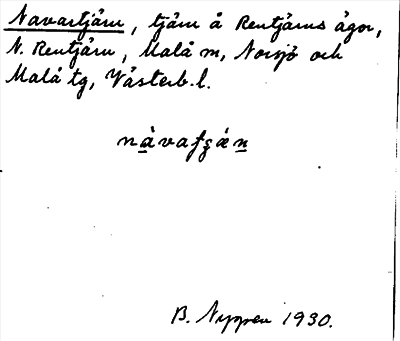 Navartjärn, tjärn å Rentjärns ägor,
N. Rentjärn, Malå sn, Norsjö och
Malå tg, Västerb. l.
B. Nyppen 1930.